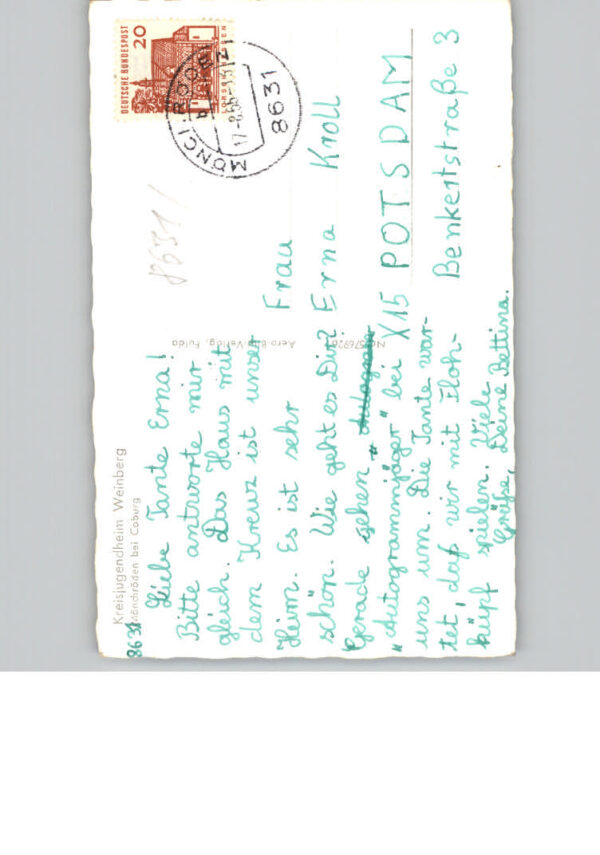 Kreisjugendheim Weinberg
8631 Mönchröden bei Coburg
Liebe Tante Erna!
Bitte antworte mir
gleich. Das Haus mit
dem Kreuz ist unser
Heim. Es ist sehr
schön. Wie geht es Dir?
Gerade gehen
"Autogrammjäger" bei
uns um. Die Tante war-
tet, daß wir mit Floh-
hüpf spielen. Viele
Grüße, Deine Bettina.
Aero-Bild-Verlag, Fulda
DEUTSCHE BUNDESPOST
20
8631
8631
Frau
Erna Kroll
X15 POTSDAM
Benkertstraße 3